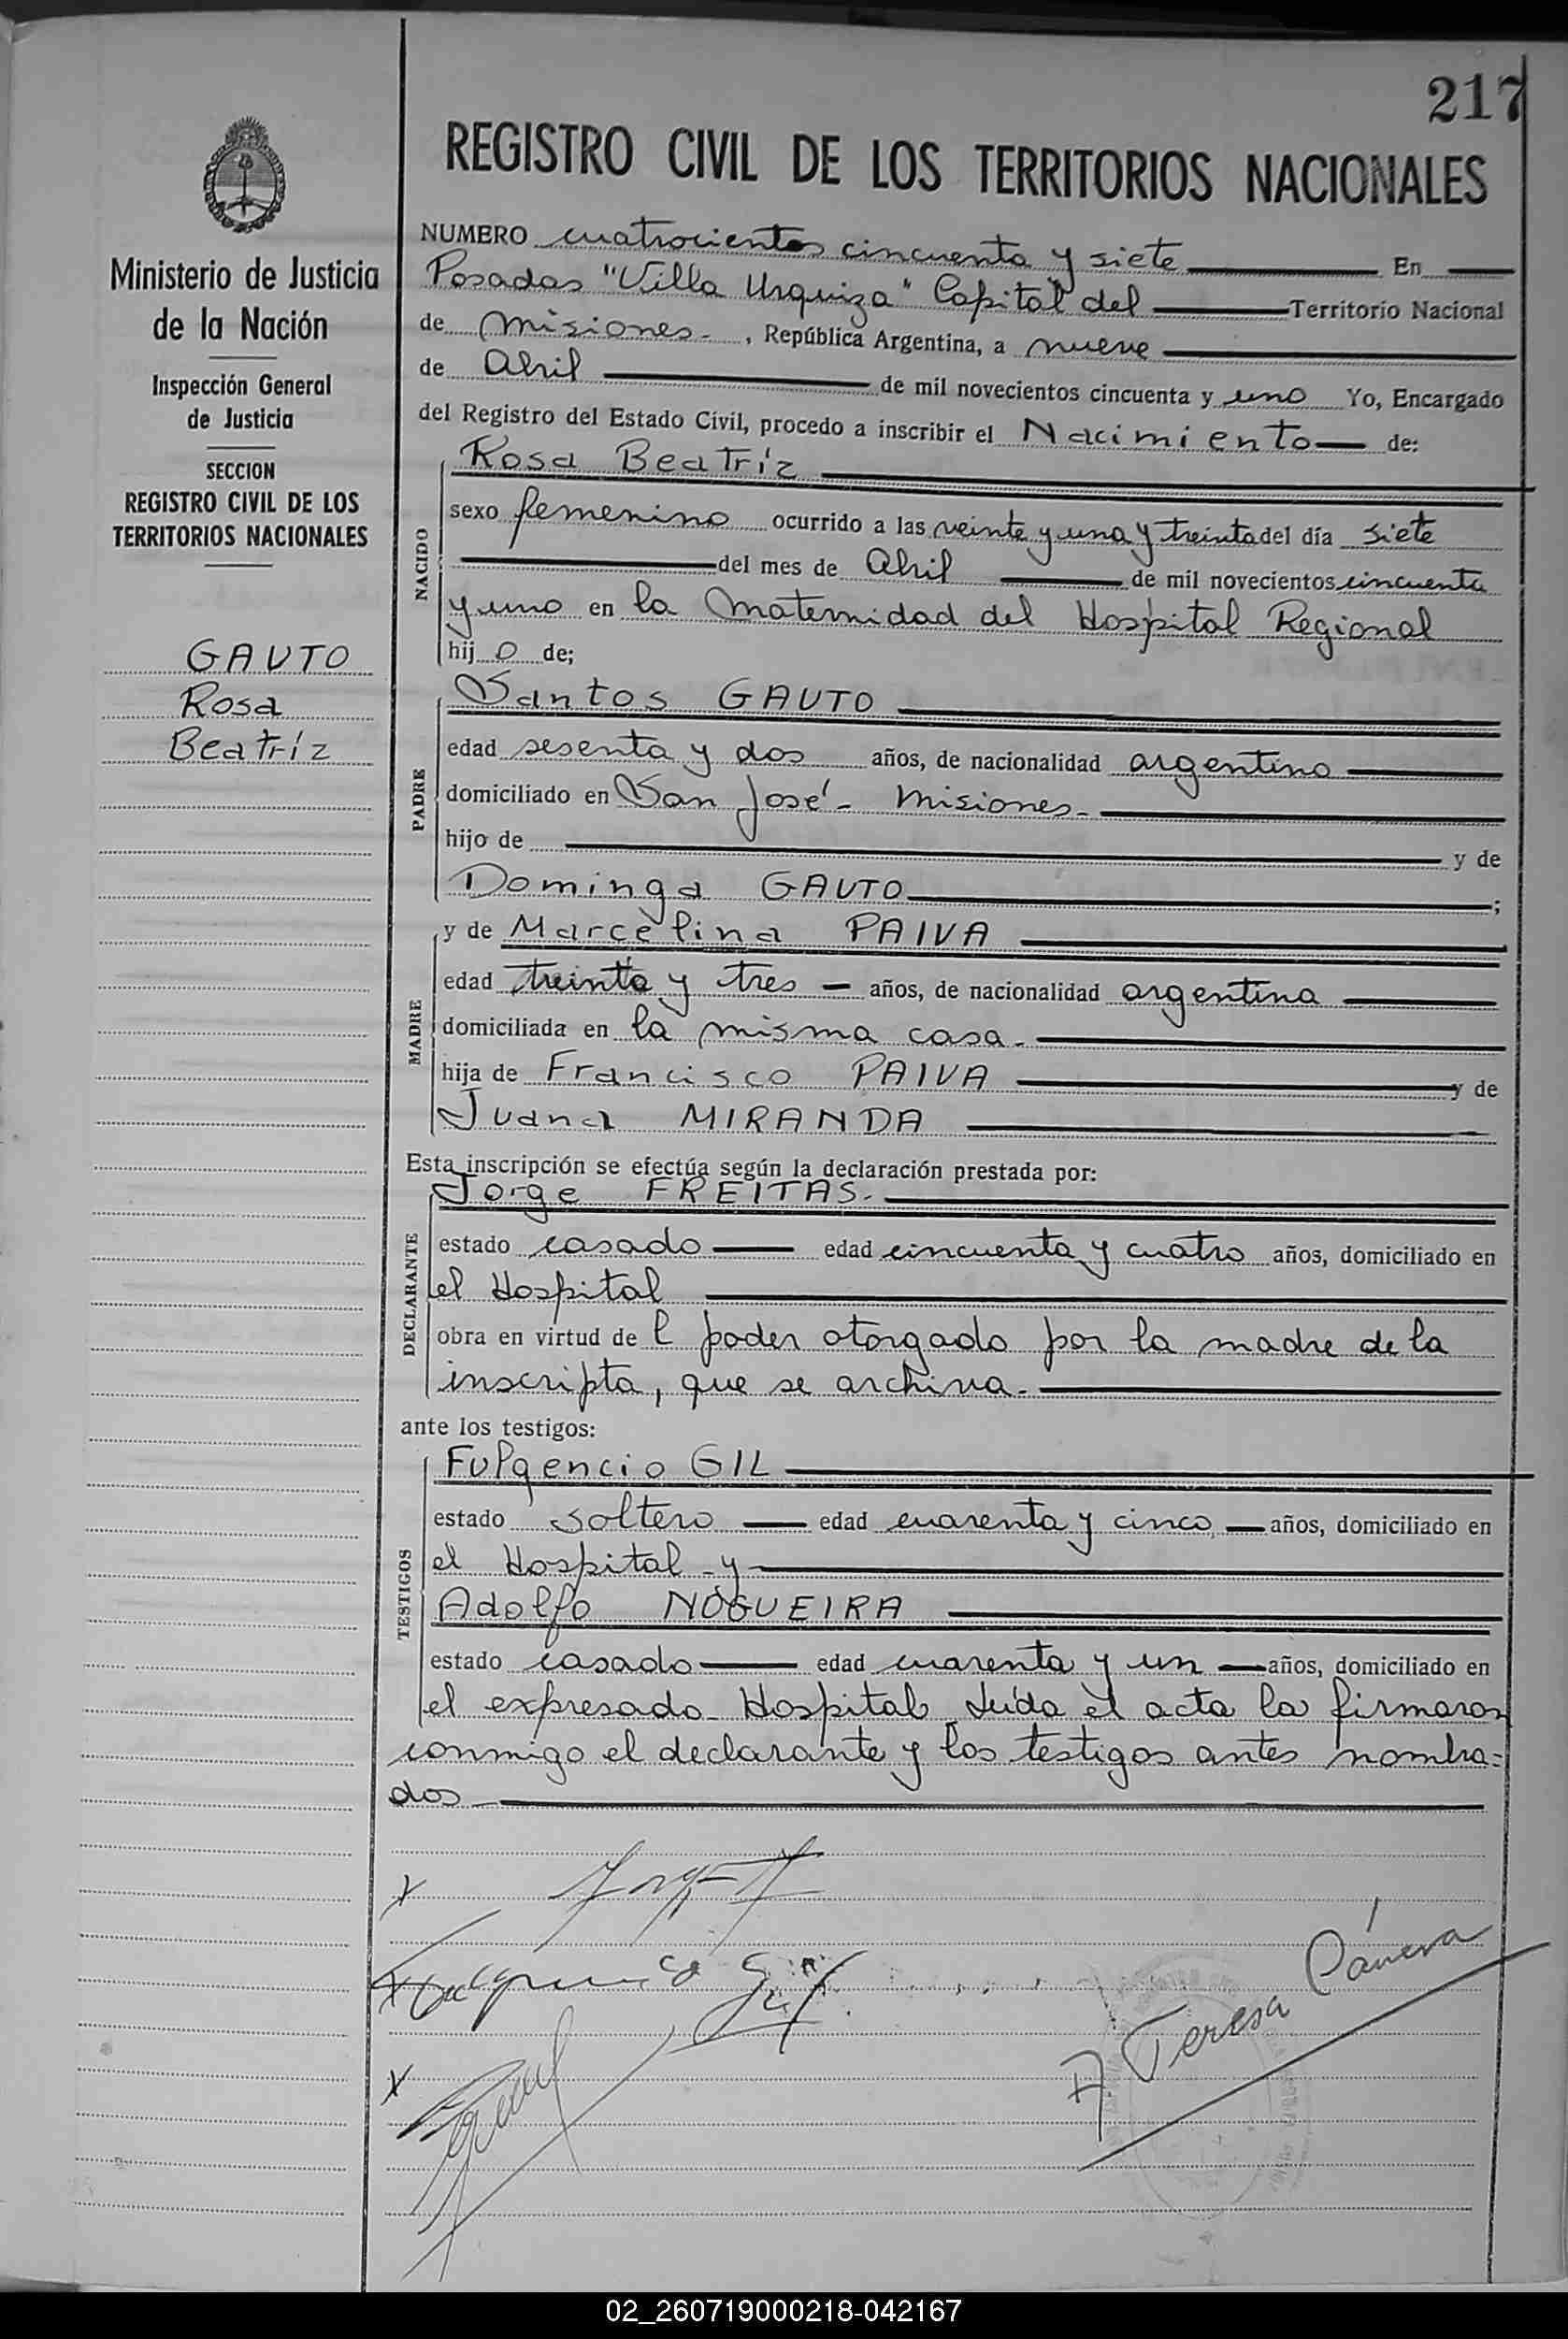 217
REGISTRO CIVIL DE LOS TERRITORIOS NACIONALES
Ministerio de Justicia
de la Nación
Inspección General
de Justicia
SECCION
REGISTRO CIVIL DE LOS
TERRITORIOS NACIONALES
GAUTO
Rosa
Beatríz
NUMERO cuatrocientos cincuenta y siete En
Posadas "Villa Urquiza" Capital del Territorio Nacional
de Misiones-, República Argentina, a nueve
de Abril de mil novecientos cincuenta y uno Yo, Encargado
del Registro del Estado Civil, procedo a inscribir el Nacimiento de:
NACIDO
Rosa Beatríz
sexo femenino ocurrido a las veinte y una y treinta del día siete
del mes de Abril de mil novecientos cincuenta
y uno en la Maternidad del Hospital Regional
hijo de;
PADRE
Santos GAUTO
edad sesenta y dos años, de nacionalidad argentino
domiciliado en San José- Misiones-
hijo de y de
Dominga GAUTO;
MADRE
y de Marcelina PAIVA
edad treinta y tres años, de nacionalidad argentina
domiciliada en la misma casa-
hija de Francisco PAIVA y de
Juana MIRANDA
Esta inscripción se efectúa según la declaración prestada por:
DECLARANTE
Jorge FREITAS.-
estado casado edad cincuenta y cuatro años, domiciliado en
el Hospital
obra en virtud de l poder otorgado por la madre de la
inscripta, que se archiva.-
ante los testigos:
TESTIGOS
Fulgencio GIL
estado soltero edad cuarenta y cinco años, domiciliado en
el Hospital y
Adolfo NOGUEIRA
estado casado edad cuarenta y un años, domiciliado en
el expresado Hospital. Leída el acta la firmaron
conmigo el declarante y los testigos antes nombra=
dos
Fulgencio Gil
A Teresa
02_260719000218-042167